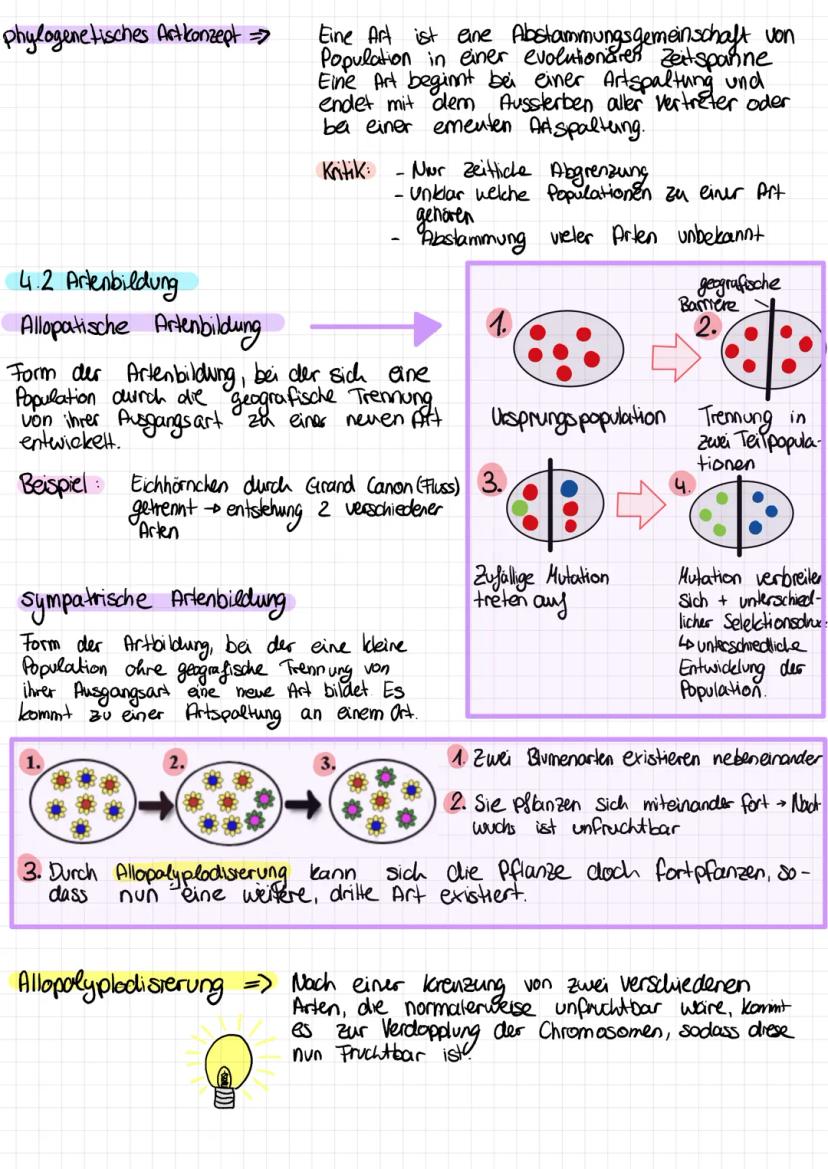 phylogenetisches Artkonzept ⇒
Eine Art ist eine Abstammungsgemeinschaft von
Population in einer evolutionären Zeitspanne
Eine Art beginnt bei einer Artspaltung und
endet mit dem Aussterben aller Vertreter oder
bei einer erneuten Artspaltung.
Kritik: - Nur zeitliche Abgrenzung
- unklar welche Populationen zu einer Art
gehören
- Abstammung vieler Arten unbekannt
4.2 Artenbildung
Allopatische Artenbildung
Form der Artenbildung, bei der sich eine
Population durch die geografische Trennung
von ihrer Ausgangsart zu einer neuen Art
entwickelt.
Beispiel: Eichhörnchen durch Grand Canon (Fluss)
getrennt → entstehung 2 verschiedener
Arten
geografische
Barriere
1.
2.
Ursprungspopulation
Trennung in
zwei Teilpopula-
tionen
3.
4.
Zufällige Mutation
treten auf
Mutation verbreiten
sich + unterschied-
licher Selektionsdruc
↳ unterschiedliche
Entwicklung der
Population.
sympatrische Artenbildung
Form der Artbildung, bei der eine kleine
Population ohne geografische Trennung von
ihrer Ausgangsart eine neue Art bildet. Es
kommt zu einer Artspaltung an einem Ort.
1.
2.
3.
1. Zwei Blumenarten existieren nebeneinander
2. Sie pflanzen sich miteinander fort → Nach
wuchs ist unfruchtbar
3. Durch Allopolyplodisierung kann sich die Pflanze doch fortpfanzen, so-
dass nun eine weitere, dritte Art existiert.
Allopolyplodisierung ⇒
Nach einer Kreuzung von zwei verschiedenen
Arten, die normalerweise unfruchtbar wäre, kommt
es zur Verdopplung der Chromosomen, sodass diese
nun Fruchtbar ist.